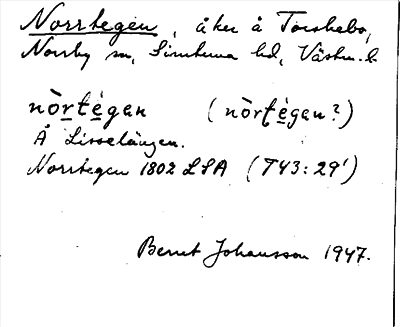 Norrtegen, åker å Torskebo,
Norrby sn, Simtuna hd, Västm. l.
nòrtégan (nòrtégan?)
Å Lisselängen.
Norrtegen 1802 LSA (T43:29¹)
Bernt Johansson 1947.